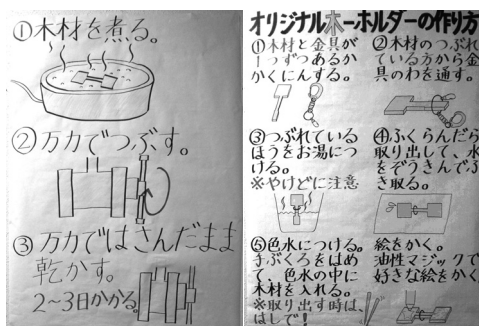 ①木材を煮る。
②万力でつぶす。
③万力ではさんだまま
乾かす。
2～3日かかる。
オリジナル木ーホルダーの作り方
①木材と金具が
1つずつあるか
かくにんする。
②木材のつぶれ
ている方から金
具のわを通す。
③つぶれている
ほうをお湯につ
ける。
※やけどに注意
④ふくらんだら
取り出して、水
をぞうきんでふ
き取る。
⑤色水につける。
手ぶくろをはめ
て、色水の中に
木材を入れる。
※取り出す時は、
はしで!
絵をかく。
油性マジックで
好きな絵をかく